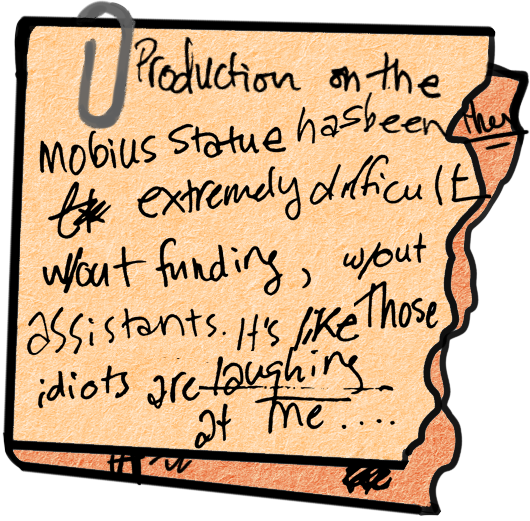 Production on the
mobius statue has been
extremely difficult
w/out funding, w/out
assistants. It's like those
idiots are laughing
at me....